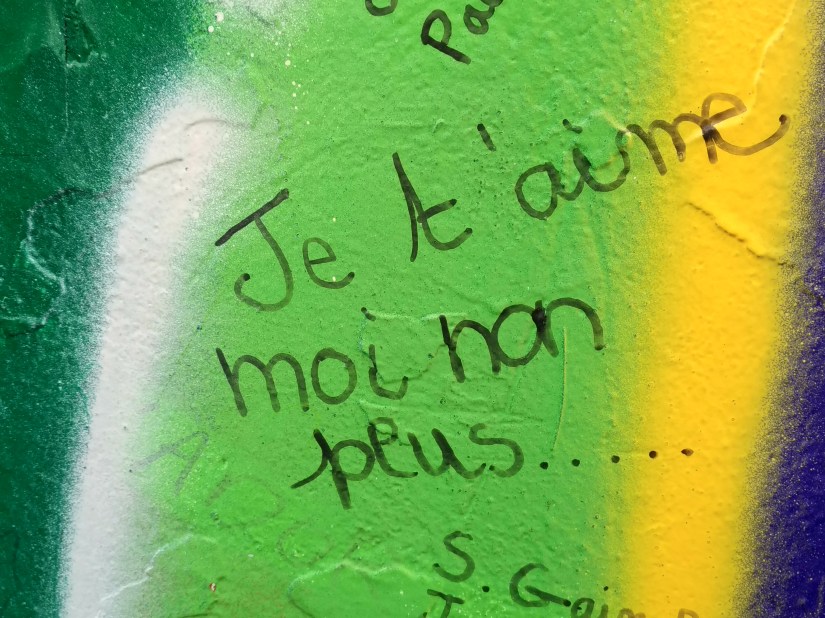 Pa
Je t'aime
moi non
peus.....
S. Gain